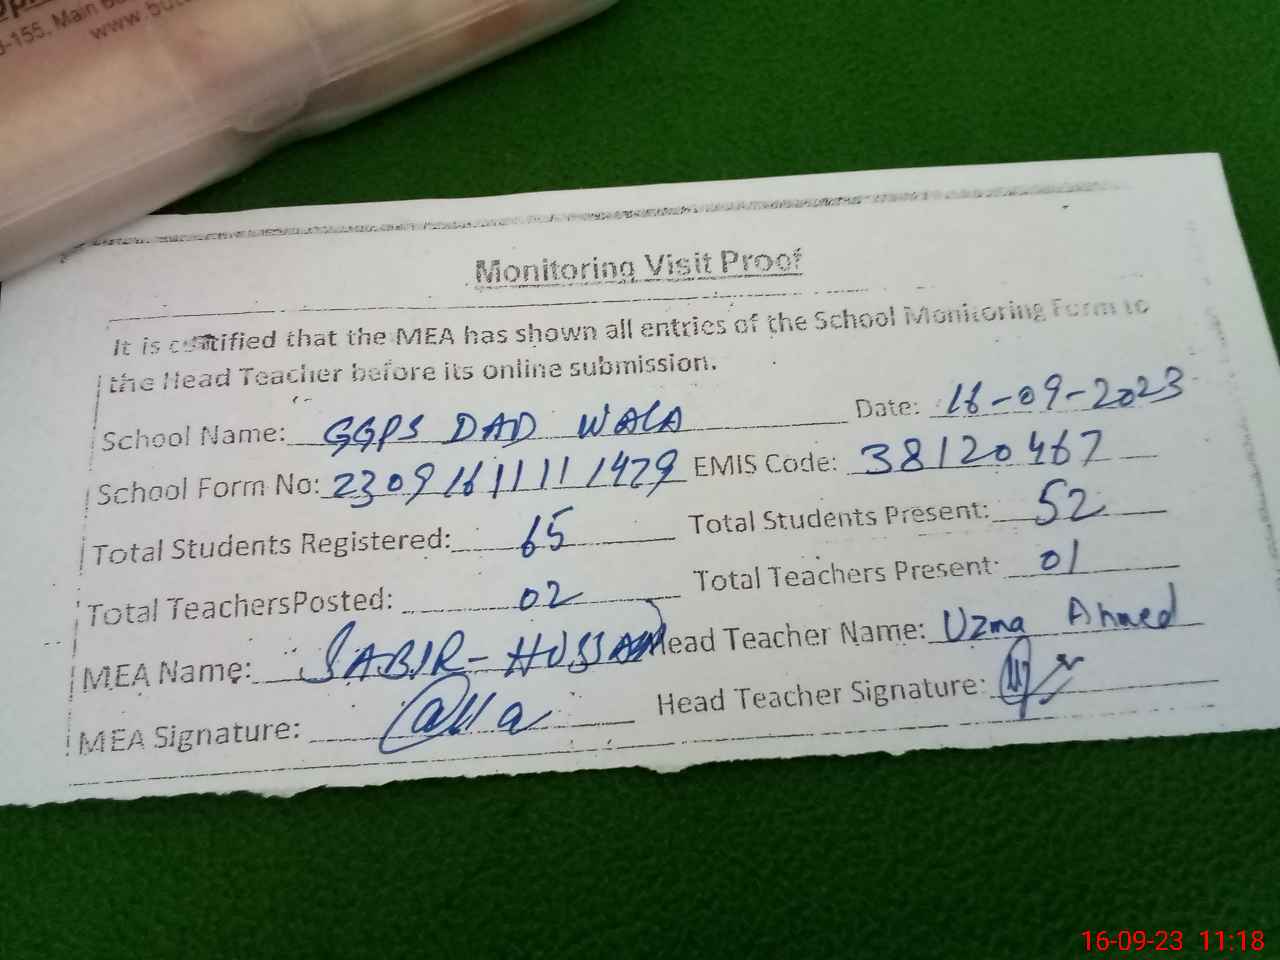 d-155, Main
www.but
Monitoring Visit Proof
It is certified that the MEA has shown all entries of the School Monitoring Form to
the Head Teacher before its online submission.
School Name: GGPS DAD WALA Date: 16-09-2023
School Form No: 2309161111 1479 EMIS Code: 38120467
Total Students Registered: 65 Total Students Present: 52
Total TeachersPosted: 02 Total Teachers Present: 01
MEA Name: SABIR-HUSSAIN Head Teacher Name: Uzma Ahmed
MEA Signature: Head Teacher Signature:
16-09-23 11:18